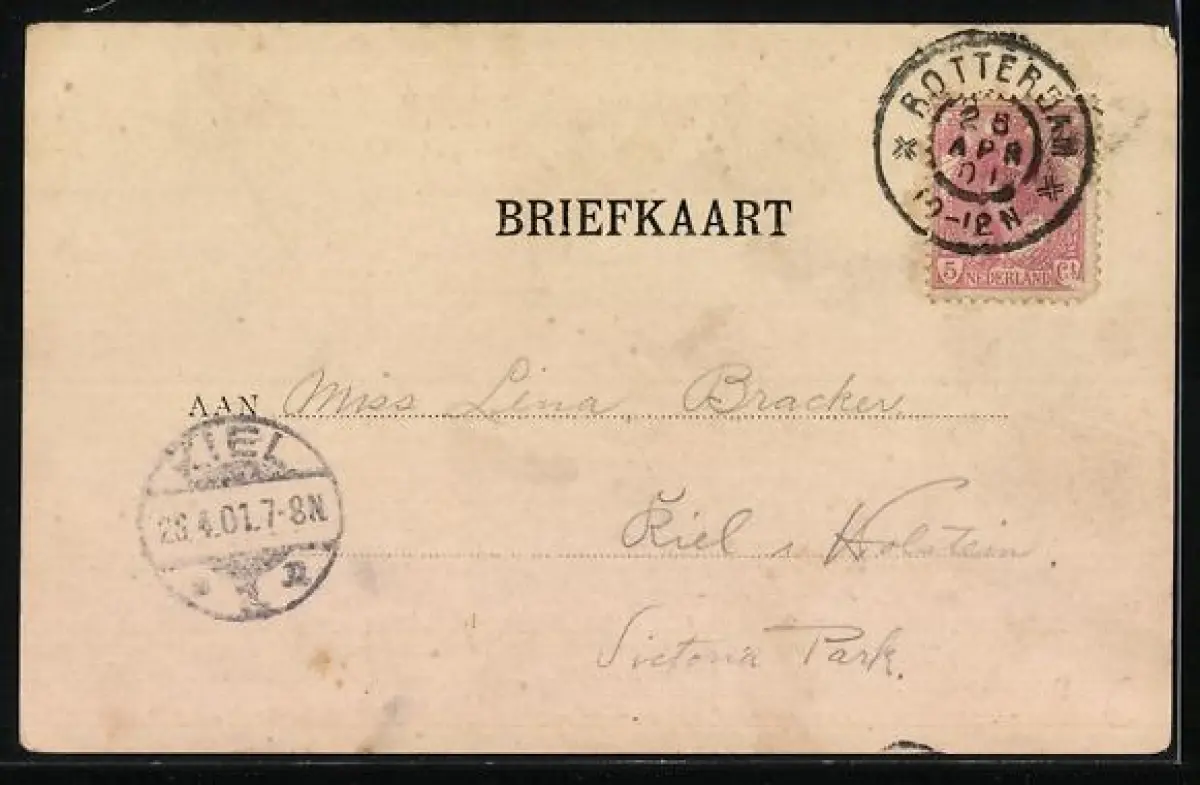 ROTTERDAM
APR
01
BRIEFKAART
5 NEDERLAND Ct
AAN Miss Lina Bracker
KIEL
26.4.01.7-8N
Kiel i Holstein.
Victoria Park.